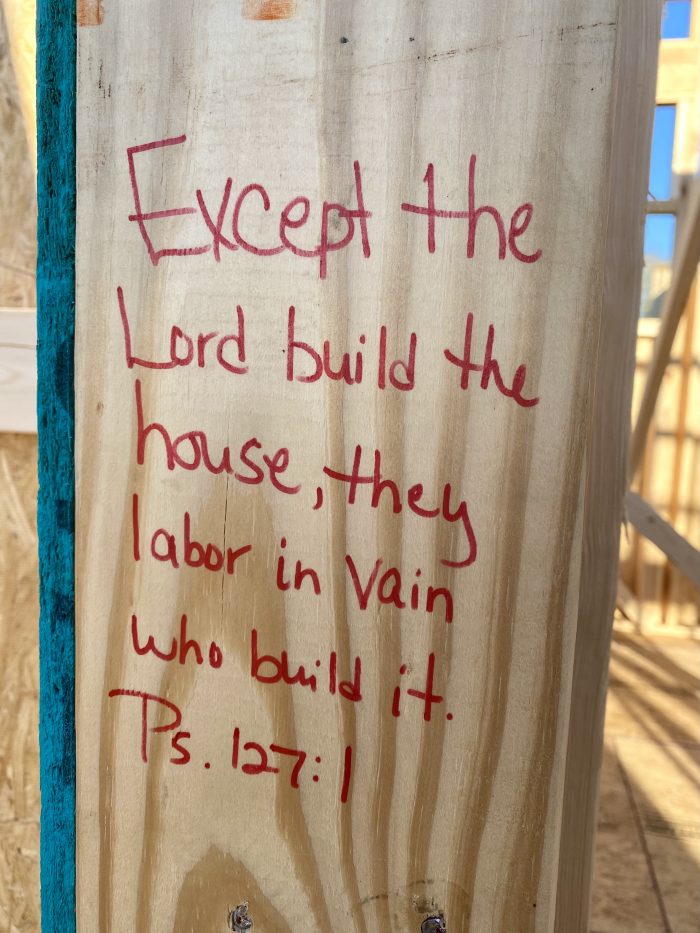 Except the
Lord build the
house, they
labor in vain
who build it.
Ps. 127:1